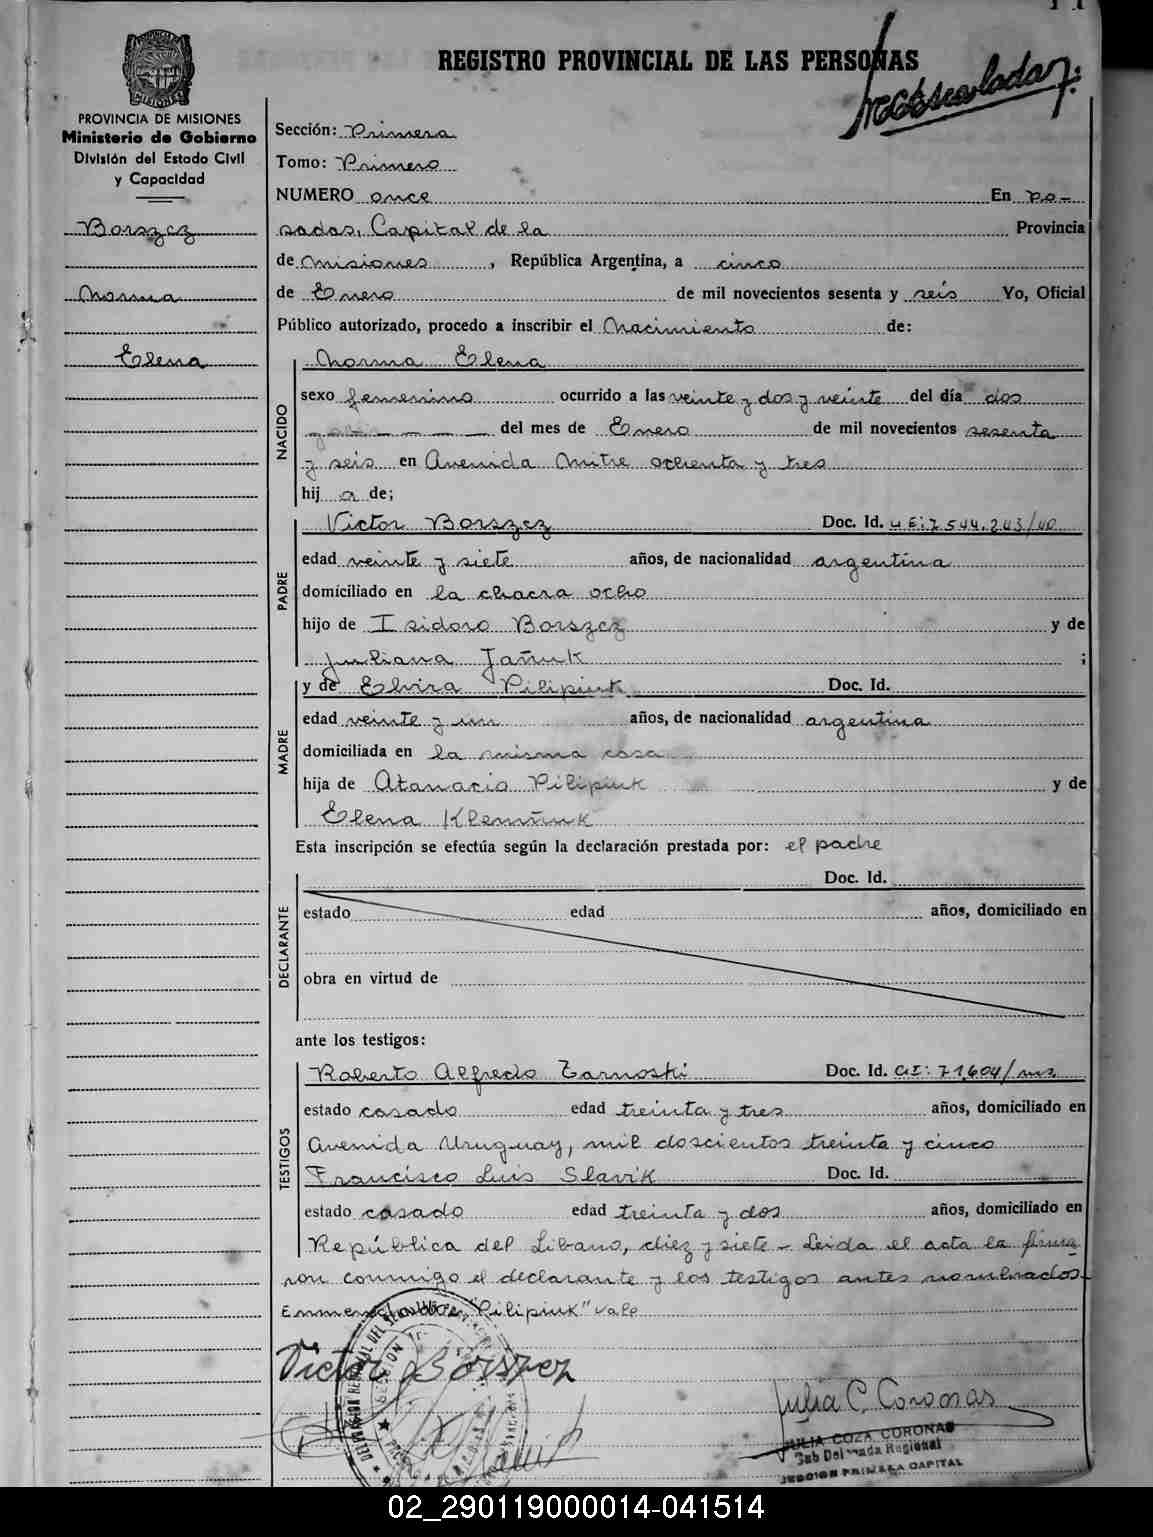 REGISTRO PROVINCIAL DE LAS PERSONAS
PROVINCIA DE MISIONES
Ministerio de Gobierno
División del Estado Civil
y Capacidad
Borszcz
Norma
Elena
Sección: Primera
Tomo: Primero
NUMERO once En Po-
sadas, Capital de la Provincia
de Misiones, República Argentina, a cinco
de Enero de mil novecientos sesenta y seis Yo, Oficial
Público autorizado, procedo a inscribir el Nacimiento de:
NACIDO
Norma Elena
sexo femenino ocurrido a las veinte y dos y veinte del día dos
del mes de Enero de mil novecientos sesenta
y seis en Avenida Mitre ochenta y tres
hij a de;
PADRE
Victor Borszcz Doc. Id. 7.544.243/40
edad veinte y siete años, de nacionalidad argentina
domiciliado en la chacra ocho
hijo de Isidoro Borszcz y de
Juliana Jañuk ;
MADRE
y de Elvira Pilipiuk Doc. Id.
edad veinte y un años, de nacionalidad argentina
domiciliada en la misma casa
hija de Atanacio Pilipiuk y de
Elena Klemñuk
Esta inscripción se efectúa según la declaración prestada por: el padre
DECLARANTE
Doc. Id.
estado edad años, domiciliado en
obra en virtud de
ante los testigos:
TESTIGOS
Roberto Alfredo Tarnoski Doc. Id. CI: 71.604/ms
estado casado edad treinta y tres años, domiciliado en
Avenida Uruguay, mil doscientos treinta y cinco
Francisco Luis Slavik Doc. Id.
estado casado edad treinta y dos años, domiciliado en
República del Libano, diez y siete - Leida el acta la firma
ron conmigo el declarante y los testigos antes nombrados.-
Enmendado: "Pilipiuk" vale
Victor Borszcz
Julia C. Coronas
JULIA COZA CORONAS
Sub Delegada Regional
SECCION PRIMERA CAPITAL
02_290119000014-041514